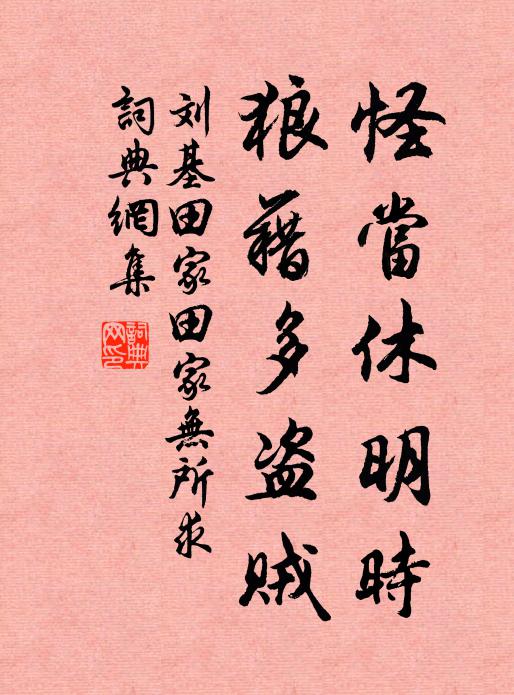 怪當休明時
狼藉多盗賊
刘基田家田家無所求
詞典網集
詞典网印